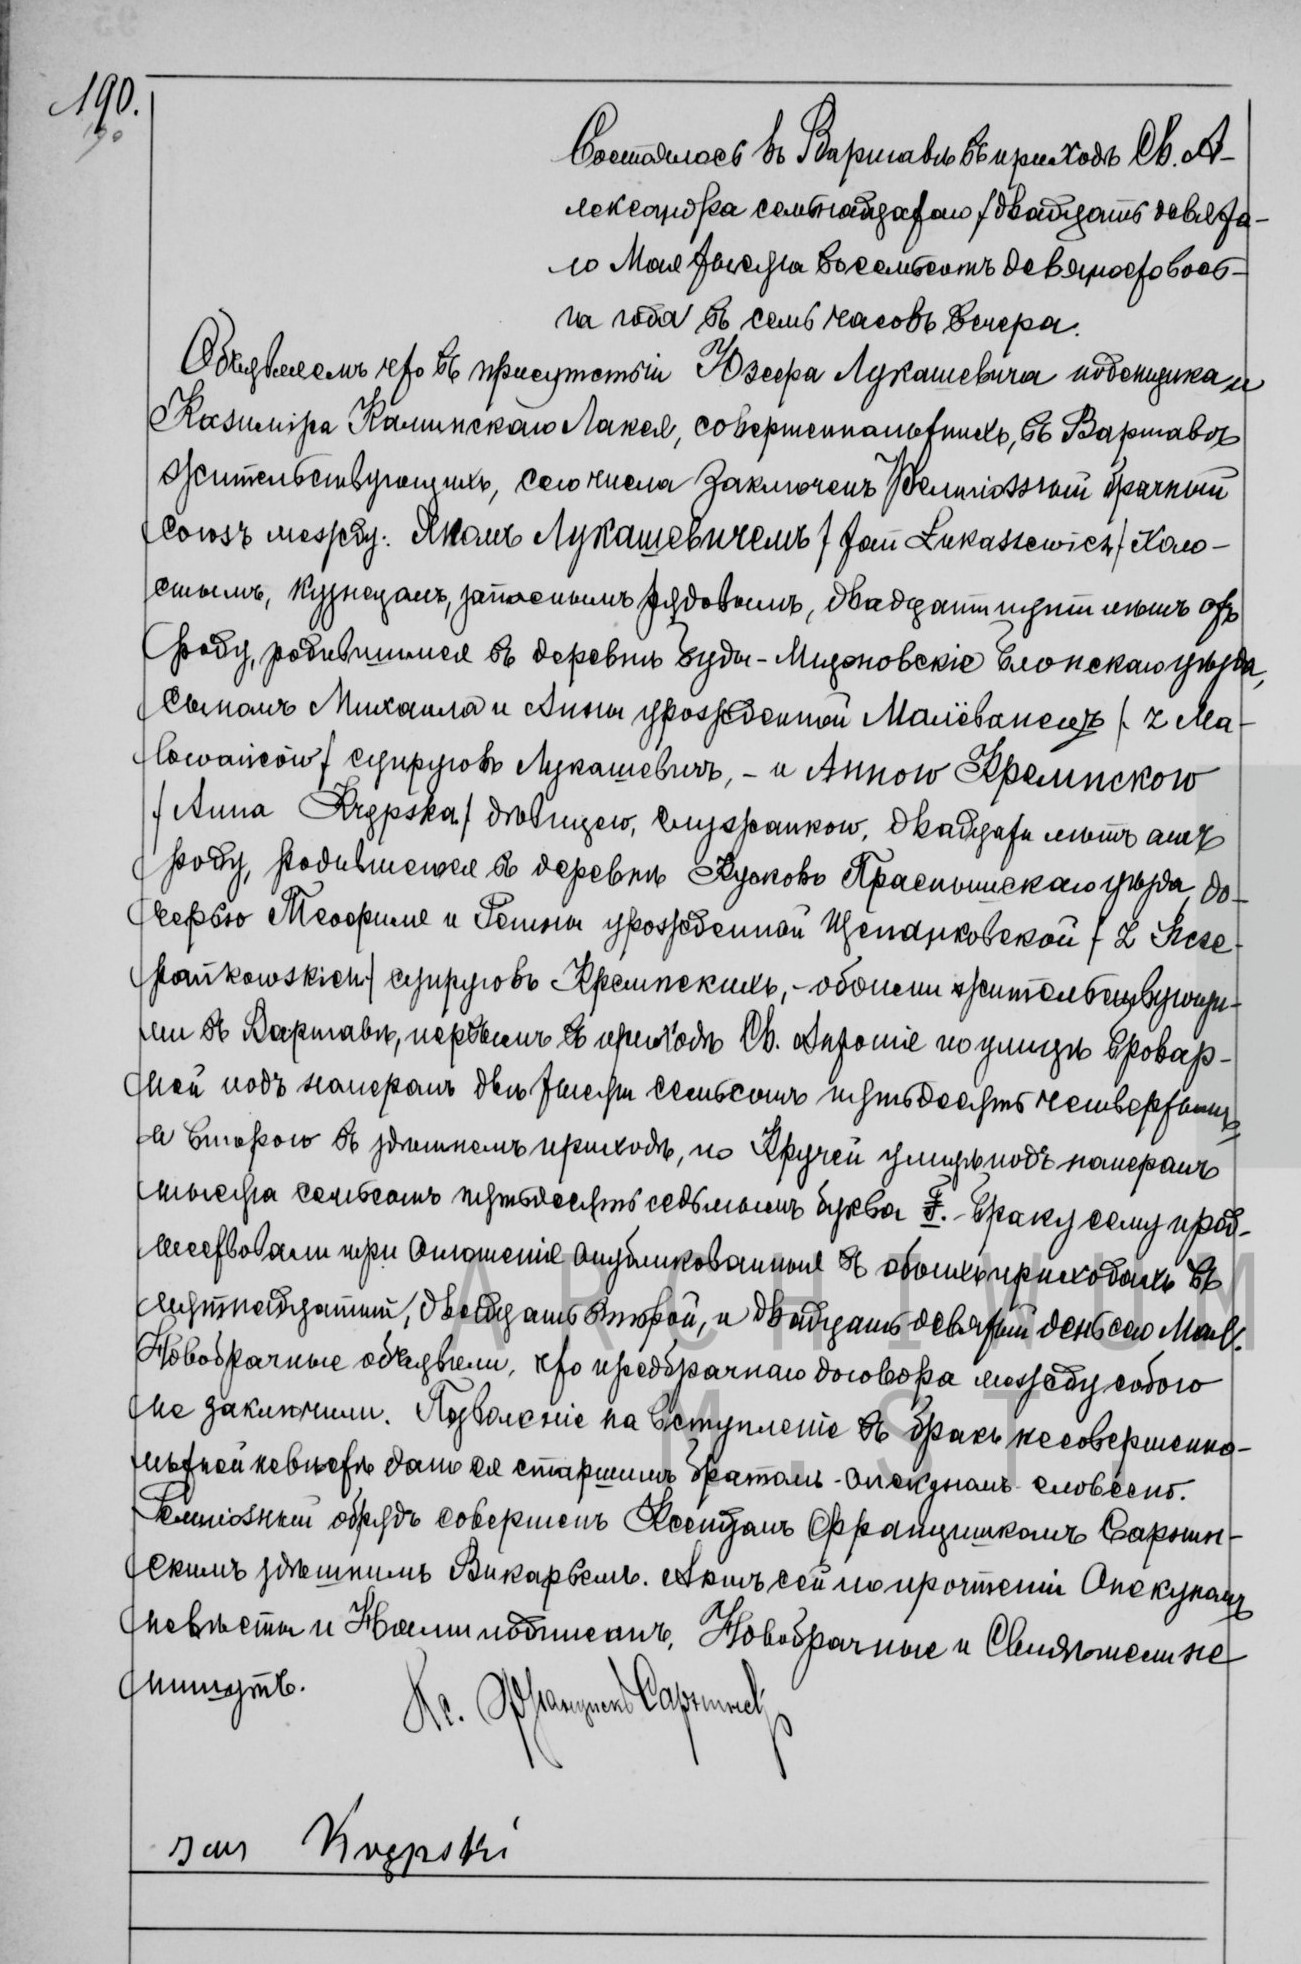 190.
190
Состоялось въ Варшавѣ въ приходѣ Св. А-
лександра семнайдатаго / двайдцать девята-
го Мая тысяча восемьсотъ девяносто вось-
га года въ семь часовъ вечера.
Объявляемъ что въ присутствіи Юзефа Лукашевича поденщика и
Казиміра Камински Лакея, совершеннолѣтнихъ, въ Варшавѣ
жительствующихъ, сего числа заключенъ Религіозный брачный
союзъ между: Яномъ Лукашевичемъ / Jan Łukaszewicz / Холо-
стымъ, кузнецомъ, запаснымъ рядовымъ, двадцати пяти лѣтъ отъ
роду, родившимся въ деревнѣ Буды-Мщоновскіе Блонскаго уѣзда,
сыномъ Михаила и Анны урожденной Малёванецъ / z Ma-
lowańców / супруговъ Лукашевичъ, - и Анною Кремпскою
/ Anna Krępska / дѣвицею, служанкою, двайдцати лѣтъ отъ
роду, родившеюся въ деревнѣ Праснышскаго уѣзда, до-
черью Теофиля и Геленs урожденной Щепанковской / z Szcze-
pańkowskich / супруговъ Кремпскихъ, - обоими жительствующи-
ми въ Варшавѣ, первымъ въ приходѣ Св. Антонія по улицѣ Бровар-
ной подъ номеромъ двѣ тысячи семьсотъ пятьдесятъ четвертымъ,
и второю въ здѣшнемъ приходѣ, по Кручей улицѣ подъ номеромъ
тысяча семьсотъ пятьдесятъ седьмымъ буква - Браку сему пред-
шествовали три оглашенія опубликованныя въ обоихъ приходахъ въ
пятнайдцатый, двайдцать второй, и двайдцать девятый день сего Мая.
Новобрачные объявили, что предбрачнаго договора между собою
не заключили. Позволеніе на вступленіе въ бракъ несовершенно-
лѣтней невѣстѣ дано ея старшимъ братомъ - опекуномъ - словесно.
Религіозный обрядъ совершенъ Ксендзомъ Францишкомъ Сарнин-
скимъ здѣшнимъ Викаріемъ. Актъ сей по прочтеніи Опекуномъ
невѣсты и Нами подписанъ, Новобрачные и Свидѣтели не
пишутъ.
Кс. Францискъ
Jan Krępski
ARCHIWUM
M. ST.